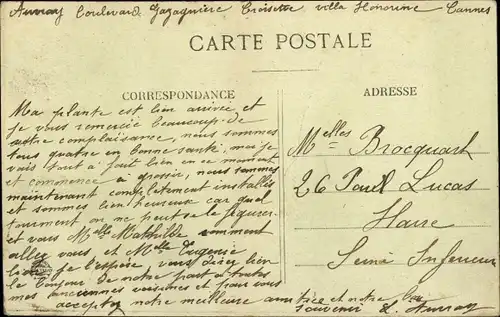 Auvray Boulevard Gazagnière Croisette villa Honorine Cannes
CARTE POSTALE
CORRESPONDANCE
ADRESSE
Ma plante est bien arrivée et
je vous remercie beaucoup de
votre complaisance, nous sommes
tous quatre en bonne santé, moi je
vais tout à fait bien en ce moment
et commence à grossir, nous sommes
maintenant complètement installés
et sommes bien heureux car quel
tourment on ne peut se le figurer
et vous Melle Mathilde comment
allez vous et Melle Eugenie
bien je l'espère vous direz bien
le bonjour de notre part à toutes
mes anciennes voisines et pour vous
acceptez notre meilleure amitiée et notre bon
souvenir L. Auvray
Melles Brocquart
26 Paul Lucas
Havre
Seine Inferieure